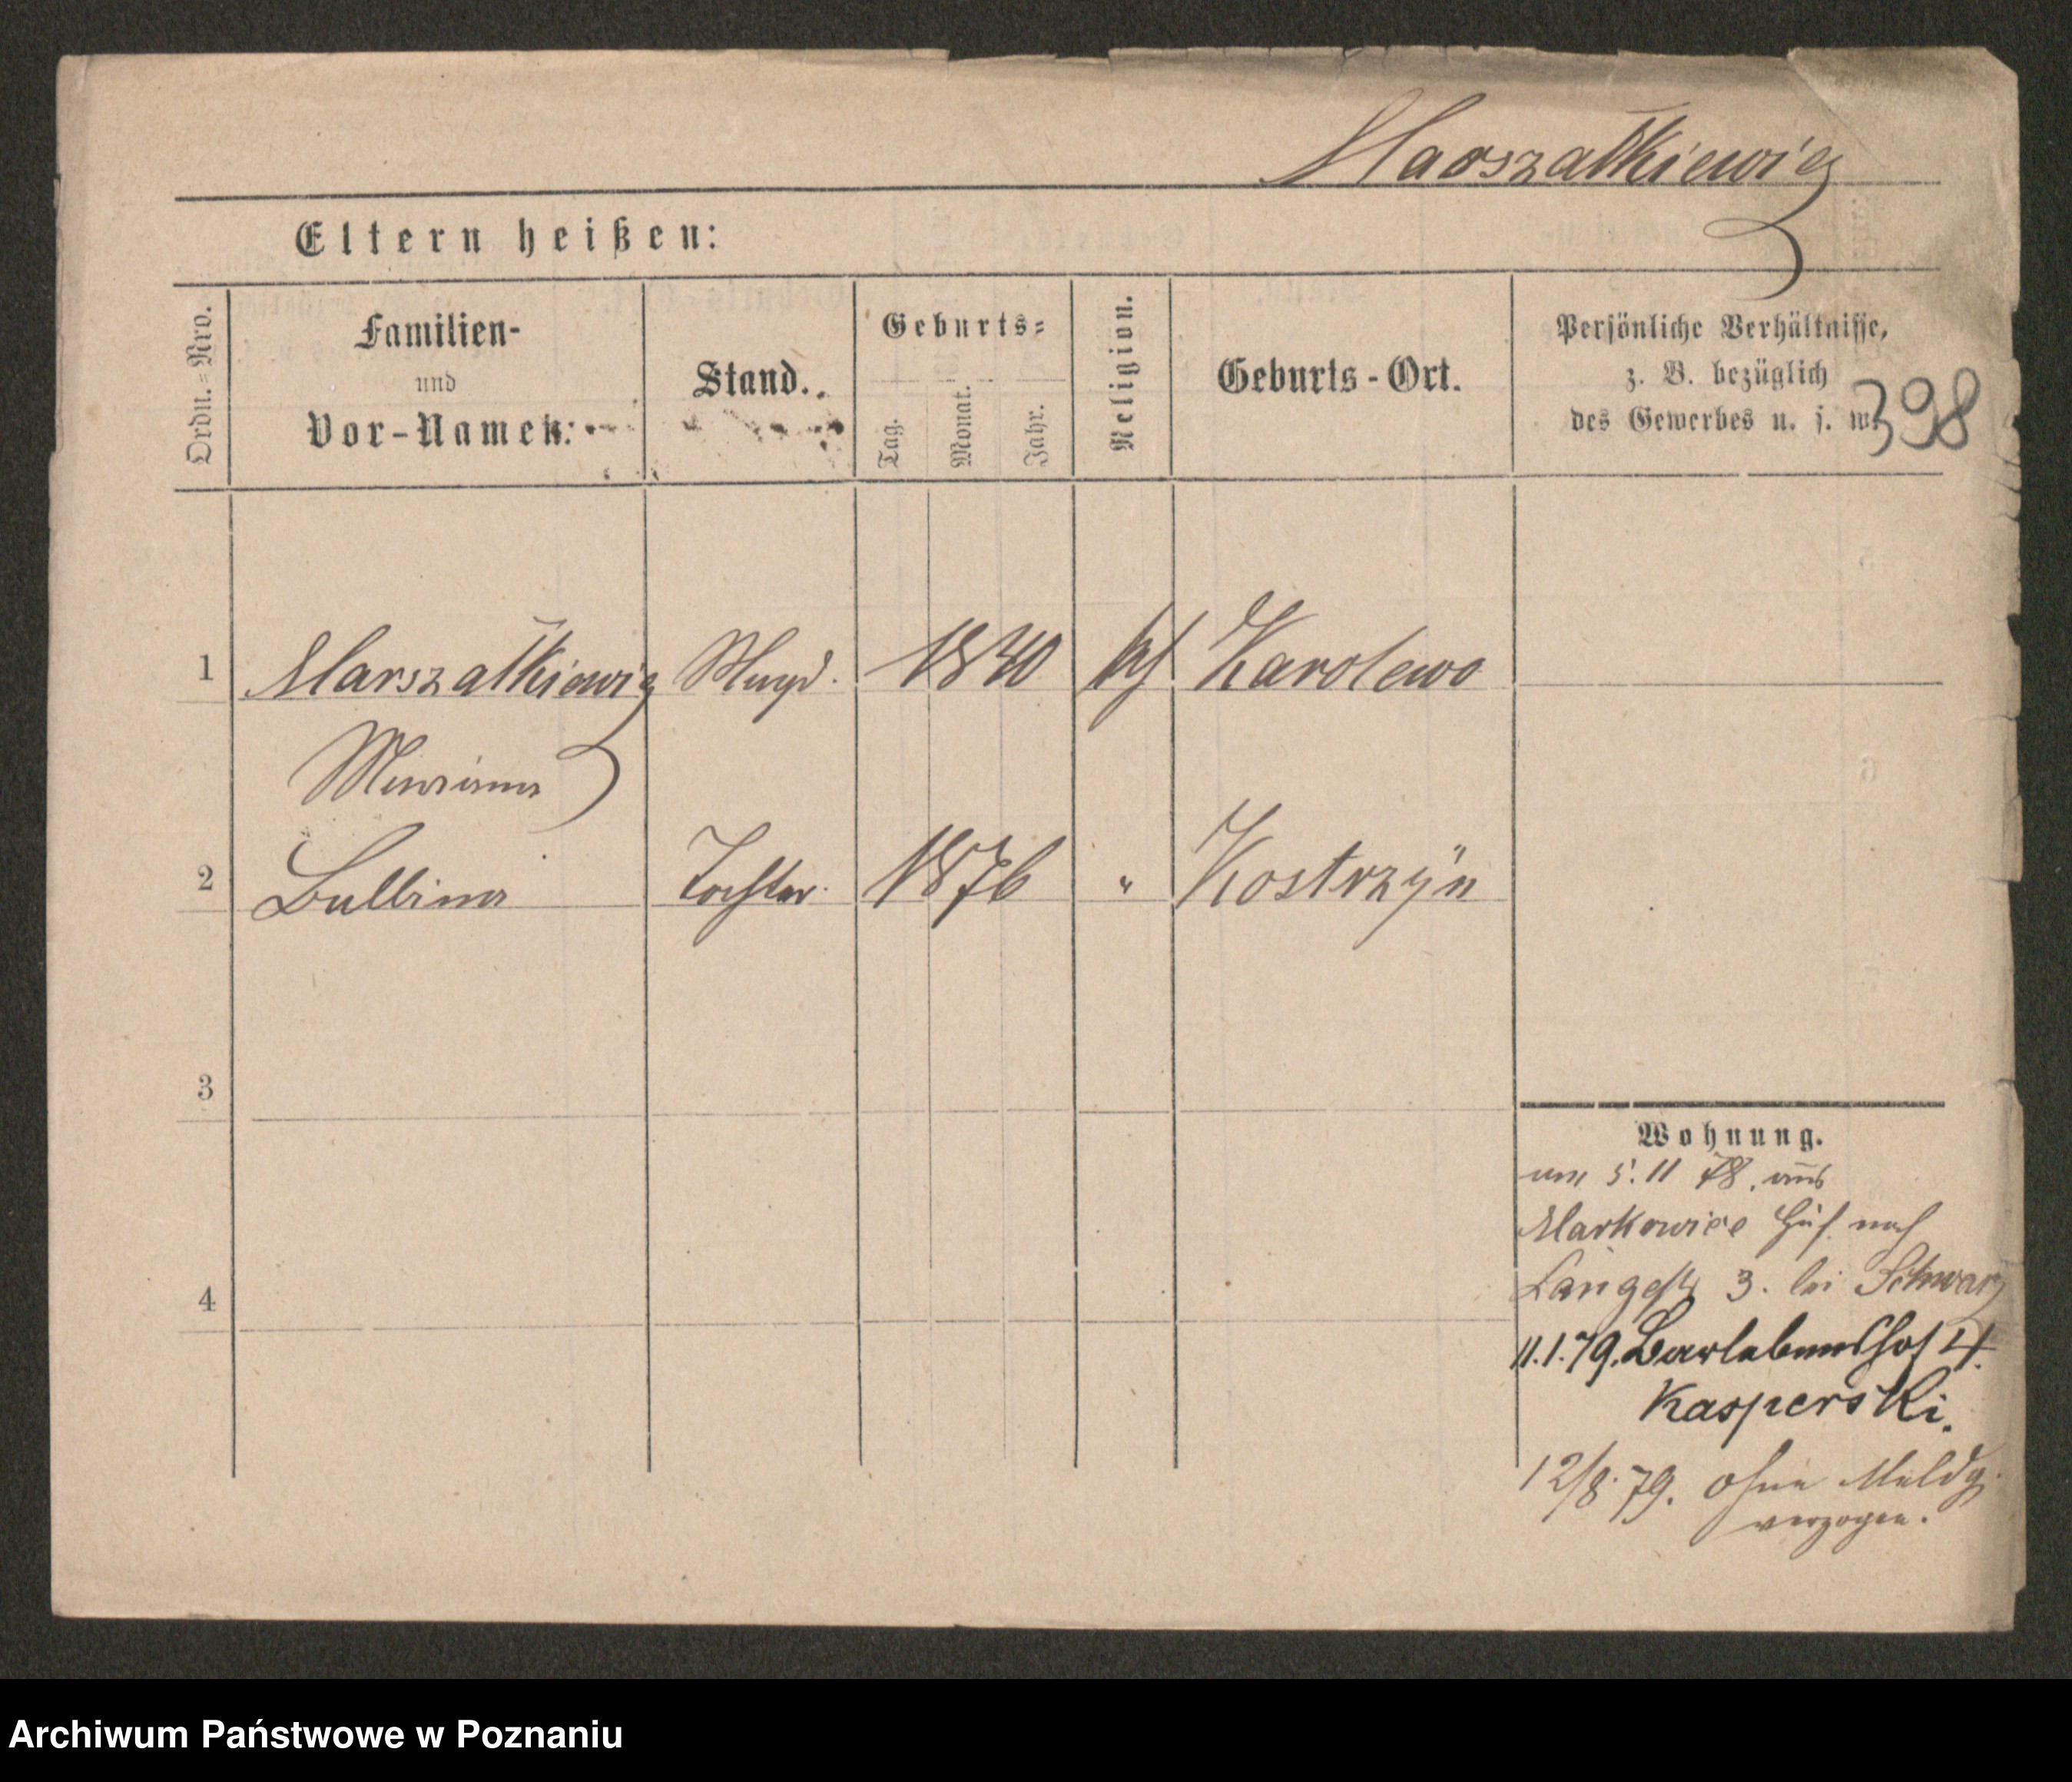 Marszałkiewicz
Eltern heißen:
Ordn.=Nro.
Familien-
und
Vor-Namen:
Stand.
Geburts=
Tag.
Monat.
Jahr.
Religion.
Geburts-Ort.
Persönliche Verhältnisse,
z. B. bezüglich
des Gewerbes u. s. w.
398
1 Marszałkiewicz Magd. 1840 kf Karolewo
Marianna
2 Balbina Tochter. 1876 " Kostrzÿn
3
4
Wohnung.
am 5. 11 78. aus
Markowice nach
Langestr 3. bei Schwarz
11.1.79. Berlebenshof 4.
Kasperski.
12/8. 79. ohne Meldg.
verzogen.
Archiwum Państwowe w Poznaniu